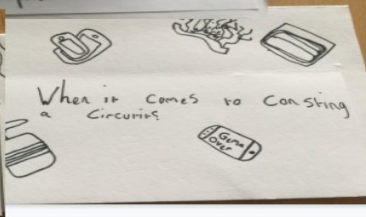 When it comes to Consting
a Circurits
Game
Over